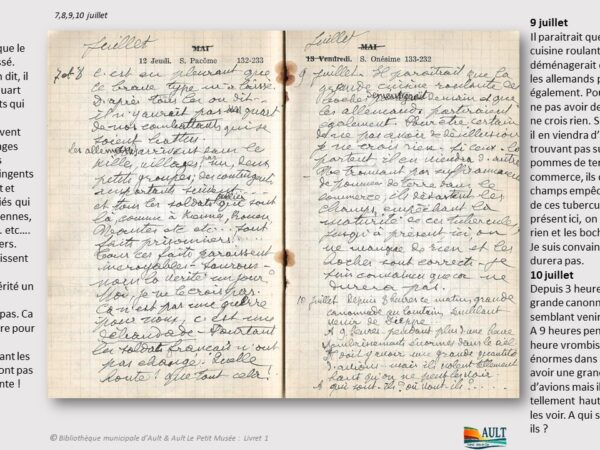 7,8,9,10 juillet
que le
ssé.
n dit, il
uart
ts qui
vent
ages
s
ingents
t et
iés qui
ennes,
. etc....
ers.
issent
érité un
pas. Ca
re pour
ant les
ont pas
nte !
Juillet
MAI
12 Jeudi. S. Pacôme 132-233
7 et 8 c'est en pleurant que
le brave type m'a laissé.
D'après tous les on dit
il n'y aurait pas un quart
de nos combattants qui se
soient battus.
Les allemands arrivent dans les
ville, villages par un, deux,
petits groupes, des contingents
importants suivent
et tous les soldats qui sont
là, comme à Rennes, Rouen
Nantes etc etc.. sont
faits prisonniers.
Tous ces faits paraissent
incroyables. Saurons-
nous la vérité un jour?
Moi, je ne le crois pas.
Ca n'est pas une guerre
pour nous, c'est une
débandade. Pourtant
les soldats français n'ont
pas changé. Quelle
honte! que tout cela!
Juillet
MAI
13 Vendredi. S. Onésime 133-232
9 juillet. Il paraitrait que la
grande cuisine roulante des
boches déménagerait demain et que
les allemands partiraient
également. Pour être certain
de ne pas avoir de désillusions
je ne crois rien. Si ceux-là
partent il en viendra d'autres
Ne trouvant pas suffisamment
de pommes de terre dans le
commerce, ils
champs empêchant la
maturité de ces tubercules.
Jusqu'à présent ici, on
ne manque de rien et les
boches sont corrects. Je
suis convaincue que ca ne
durera pas.
10 juillet Depuis 3 heures ce matin, grande
canonnade au lointain, semblant
venir de Dieppe.
A 9 heures pendant plus d'une heure
vrombissements énormes dans le ciel
Il doit y avoir une grande quantité
d'avions mais ils volent tellement
haut qu'on ne peut les voir.
A qui sont-ils? où vont-ils?
9 juillet
Il paraitrait que
cuisine roulant
déménagerait
les allemands p
également. Pou
ne pas avoir de
ne crois rien. S
il en viendra d'
trouvant pas su
pommes de ter
commerce, ils d
champs empêc
de ces tubercul
présent ici, on
rien et les boch
Je suis convain
durera pas.
10 juillet
Depuis 3 heure
grande canonn
semblant venir
A 9 heures pen
heure vrombiss
énormes dans
avoir une grand
d'avions mais il
tellement haut
les voir. A qui s
ils ?
© Bibliothèque municipale d'Ault & Ault Le Petit Musée : Livret 1
AULT